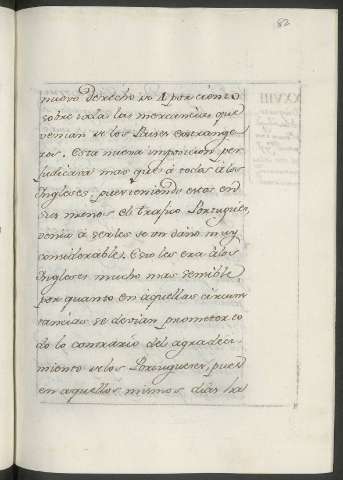 82
nuevo Derecho de 4 por ciento
sobre todas las mercancias que
venian de los Paises estrange
ros. Esta nueva imposicion per
judicava mas que à todos à los
Ingleses, pues teniendo estos en
sus manos el trafico Portugues,
venia à serles de un daño muy
considerable. Esto les era à los
Ingleses mucho mas sensible,
por quanto en aquellas circuns
tancias se devian prometer to
do lo contrario del agradeci
miento de los Portugueses, pues
en aquellos mismos dias ha
XXXVIII